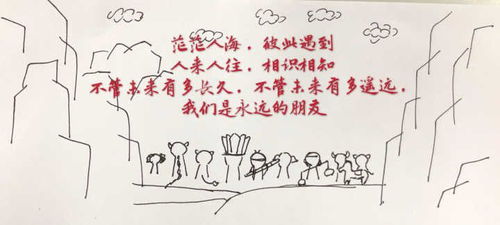 茫茫人海，彼此遇到
人来人往，相识相知
不管未来有多长久，不管未来有多遥远，
我们是永远的朋友